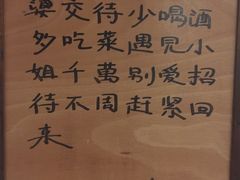 婆交待少喝酒
多吃菜遇见小
姐千萬别爱招
待不周赶紧回
来